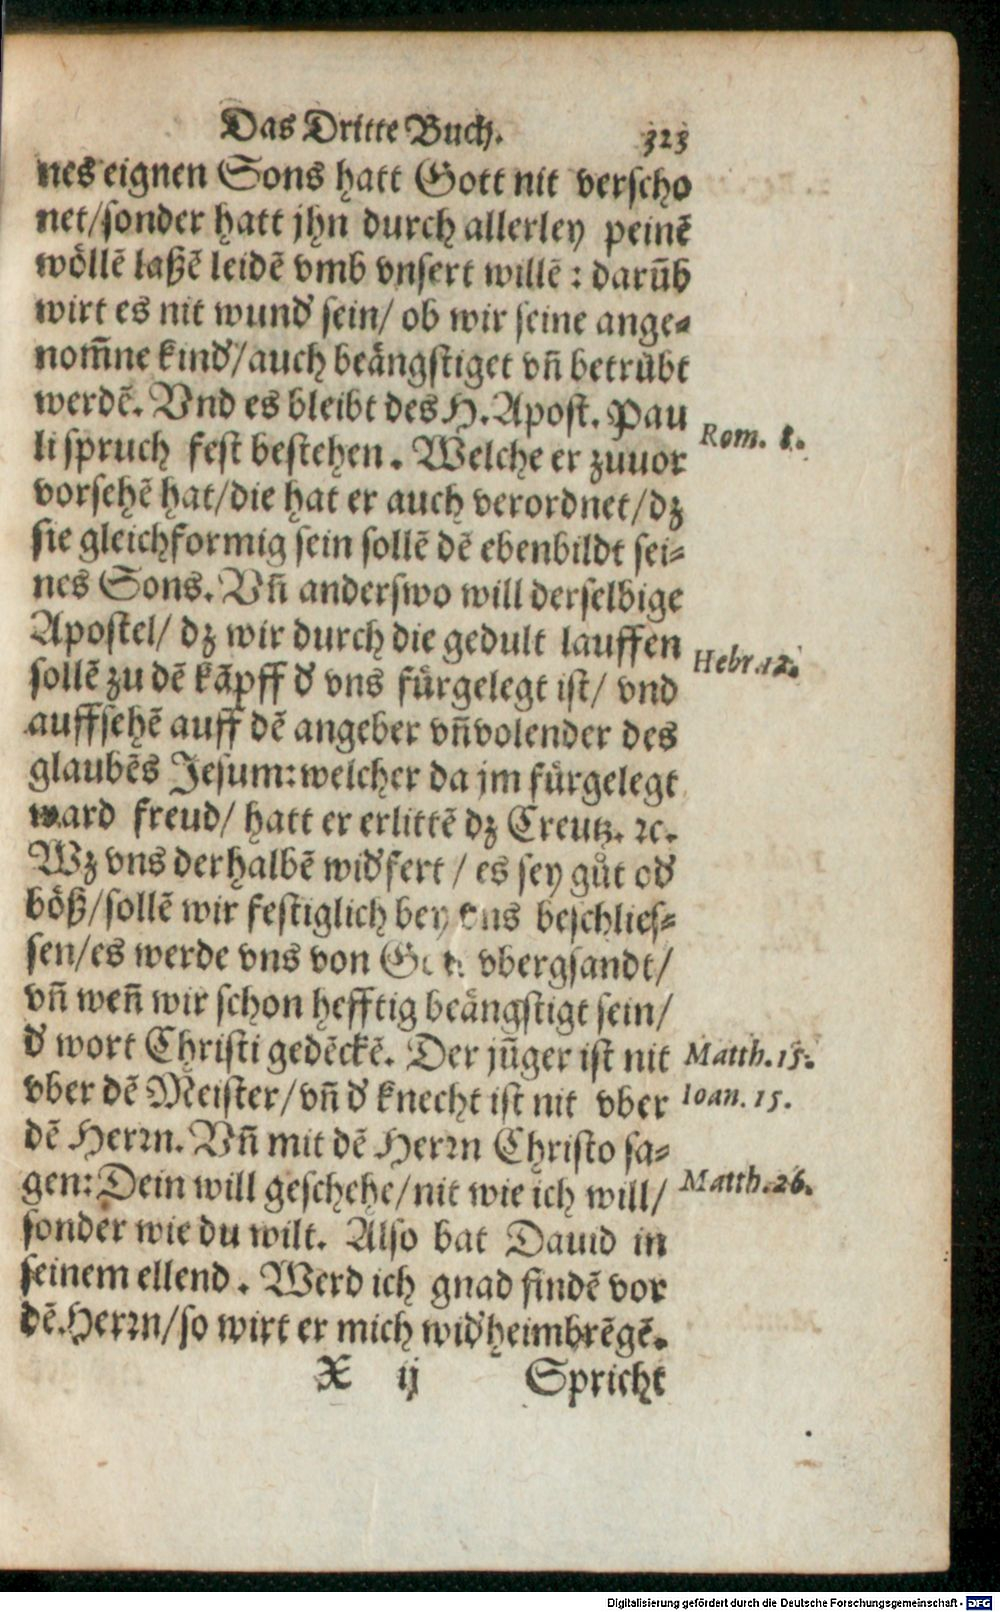 Das Dritte Buch. 323
nes eignen Sons hatt Gott nit verscho
net/sonder hatt jhn durch allerley peinē
wöllē laßē leidē vmb vnsert willē: darūb
wirt es nit wund' sein/ ob wir seine ange-
nom̄ne kind'/auch beängstiget vn̄ betrübt
werdē. Vnd es bleibt des H. Apost. Pau
li spruch fest bestehen. Welche er zuuor
Rom. 8.
vorsehē hat/die hat er auch verordnet/dz
sie gleichformig sein sollē dē ebenbildt sei-
nes Sons. Vn̄ anderswo will derselbige
Apostel/ dz wir durch die gedult lauffen
Hebr. 12.
sollē zu dē kāpff d' vns fürgelegt ist/ vnd
auffsehē auff dē angeber vn̄volender des
glaubēs Jesum: welcher da jm fürgelegt
ward freud/ hatt er erlittē dz Creutz. ꝛc.
Wz vns derhalbē wid'fert / es sey gůt od'
böß/sollē wir festiglich bey vns beschlies-
sen/es werde vns von vbergsandt/
vn̄ wen̄ wir schon hefftig beängstigt sein/
d' wort Christi gedēckē. Der jūger ist nit
Matth. 15.
vber dē Meister/vn̄ d' knecht ist nit vber
Ioan. 15.
dē Herrn. Vn̄ mit dē Herrn Christo sa-
gen: Dein will geschehe/nit wie ich will/
Matth. 26.
sonder wie du wilt. Also bat Dauid in
seinem ellend. Werd ich gnad findē vor
dē Herrn/so wirt er mich wid'heimbrēgē.
X ij Spricht
Digitalisierung gefördert durch die Deutsche Forschungsgemeinschaft - DFG